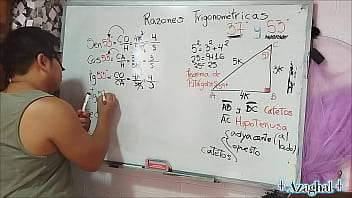 Razones Trigonometricas
37° y 53°
Sen53°= CO/H = 4K/5K = 4/5
Cos53°= CA/H = 3K/5K = 3/5
Tg53°= CO/CA = 4K/3K = 4/3
5²=3²+4²
25=9+16
25=25
Teorema de
Pitágoras
C
5K
53°
A
4K
B
AB y BC Catetos
AC Hipotenusa
catetos
adyacente (al lado)
opuesto
+ Azaghal +